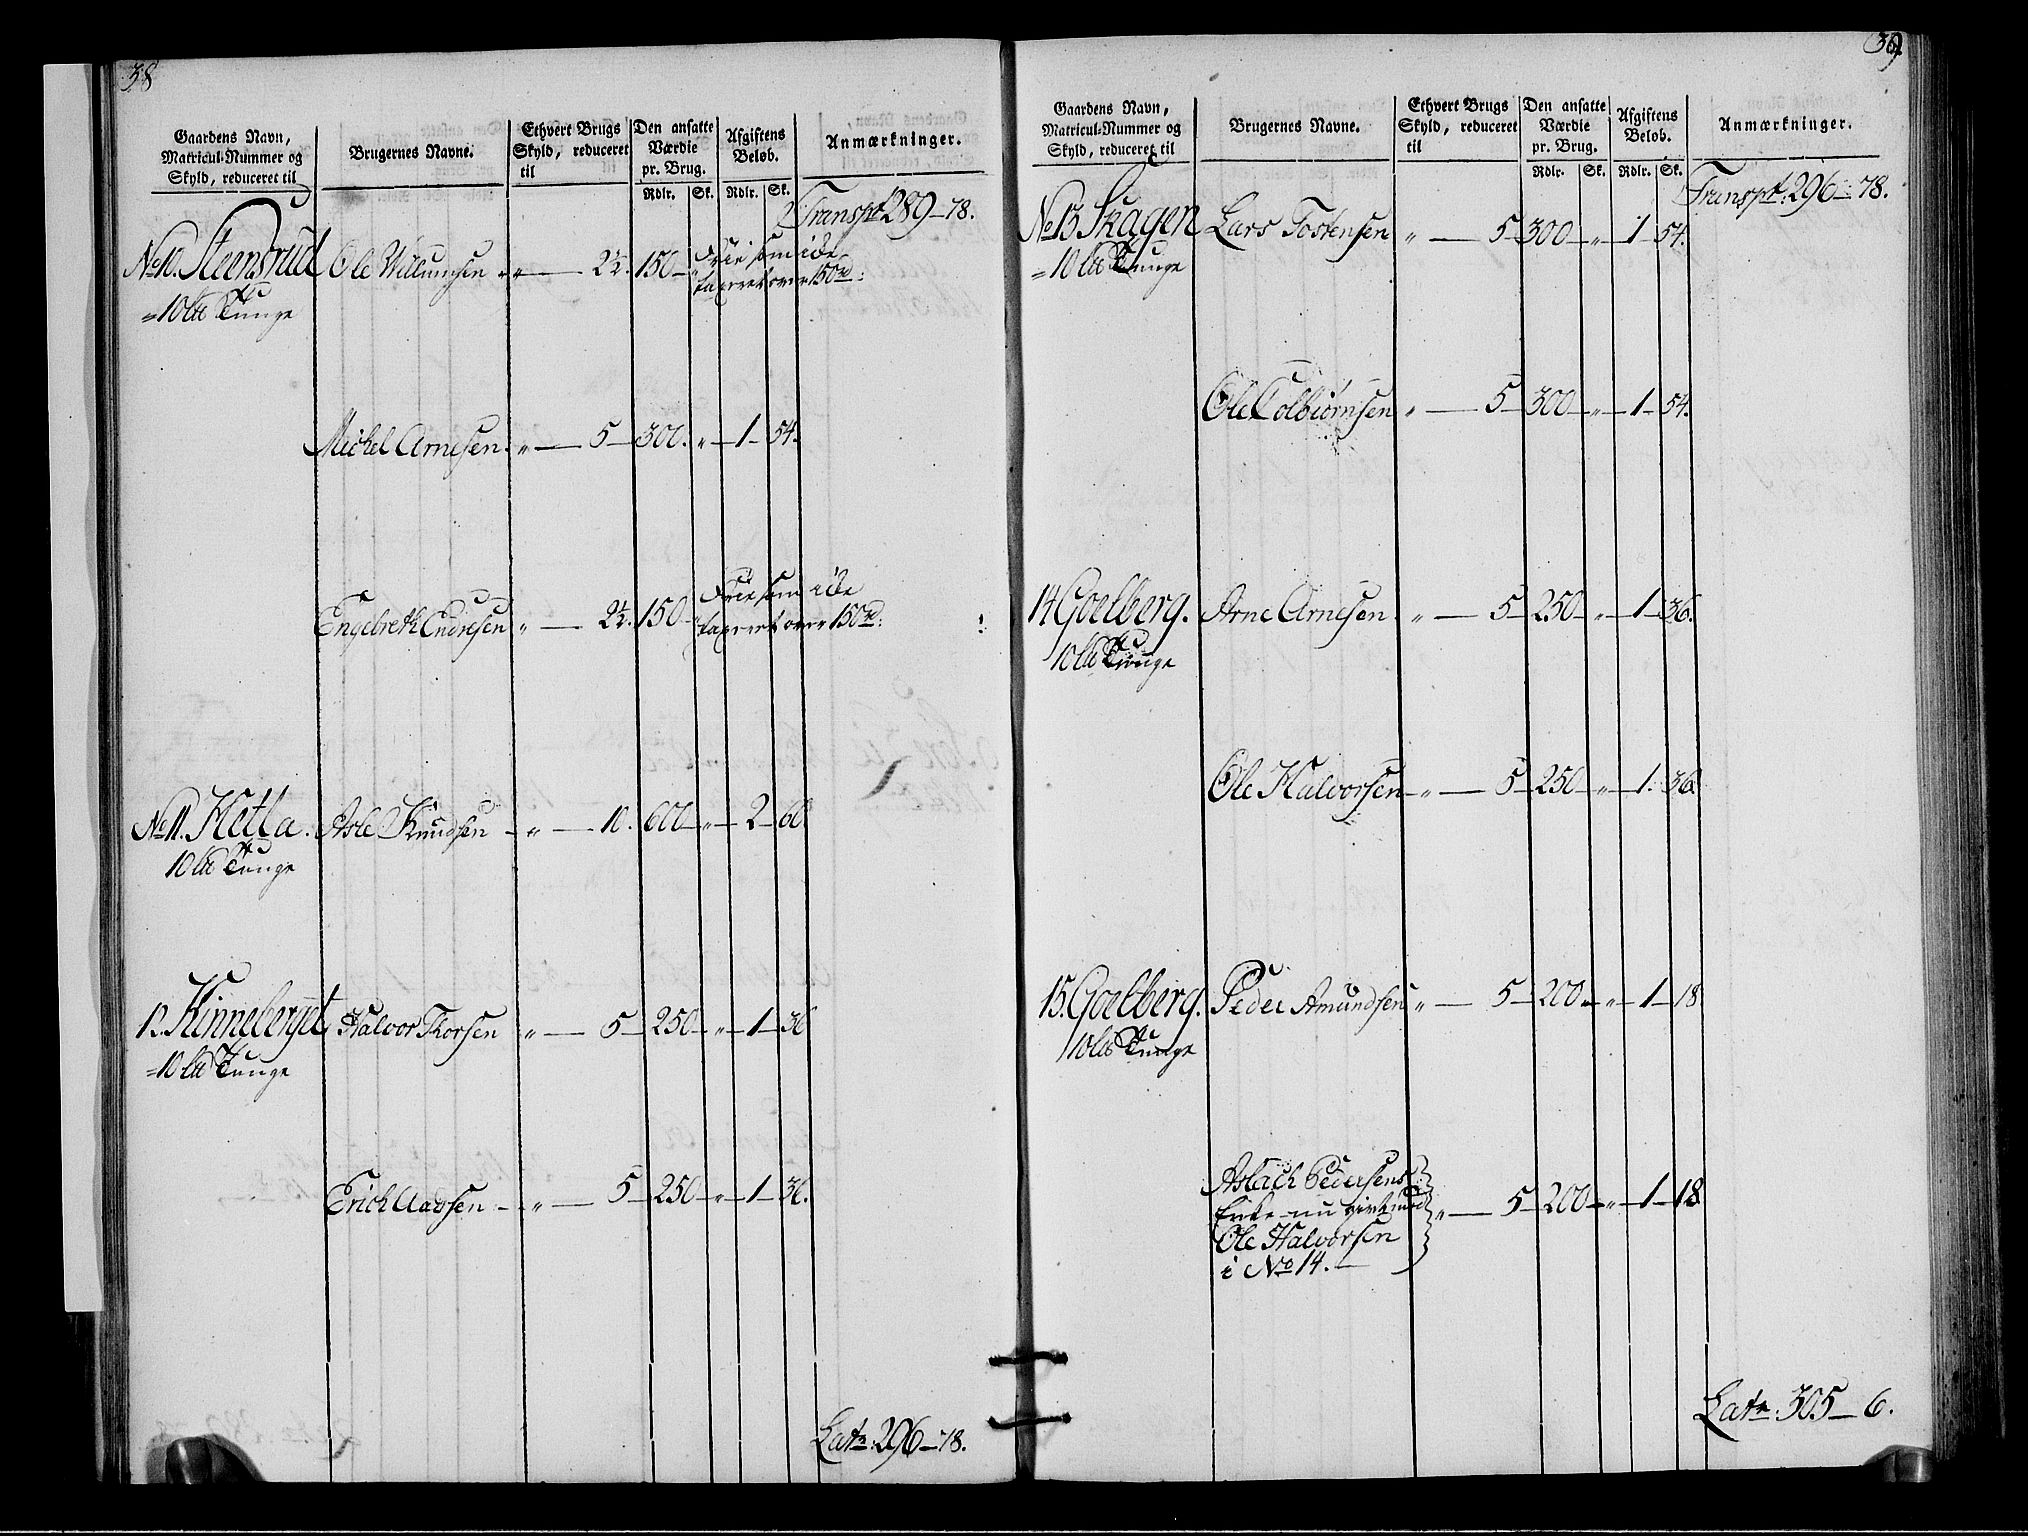 38
Gaardens Navn,
Matricul-Nummer og
Skyld, reduceret til
Brugernes Navne.
Ethvert Brugs
Skyld, reduceret
til
Den ansatte
Værdie
pr. Brug.
Rdlr. Sk.
Afgiftens
Beløb.
Rdlr. Sk.
Anmærkninger.
Transpt 289 - 78.
No 10. Steensrud Ole Willumsen " — 2½. 150 — " Frie som icke
= 10 Lb Tunge taxeret over 150 rd:
Michel Arnesen " — 5 — 300. " — 1 — 54.
Engebreth Endresen " — 2½. 150 — " Frie som icke
taxeret over 150 rd:
No 11. Hetla. Asle Knudsen — " — 10. 600 — " — 2 — 60
10 Lb Tunge
12. Kinneberget Halvor Thorsen " — 5 — 250 — " — 1 — 36
= 10 Lb Tunge
Erich Aadsen — " — 5 — 250 — " — 1 — 36.
Latr: 296 — 78.
39
Gaardens Navn,
Matricul-Nummer og
Skyld, reduceret til
Brugernes Navne.
Ethvert Brugs
Skyld, reduceret
til
Den ansatte
Værdie
pr. Brug.
Rdlr. Sk.
Afgiftens
Beløb.
Rdlr. Sk.
Anmærkninger.
Transpt: 296 — 78.
No 13 Skagen Lars Tostensen " — 5 — 300 — " — 1 — 54.
= 10 Lb Tunge
Ole Colbiørnsen " — 5 — 300 — " — 1 — 54.
14 Goelberg. Arne Arnesen. " — 5 — 250 — " — 1 — 36.
10 Lb Tunge
Ole Halvorsen — " — 5 — 250 — " — 1. 36.
15. Goelberg. Peder Amundsen " — 5 — 200 — " — 1 — 18
10 Lb Tunge
Aslach Pedersens
Enke nu givt med " — 5 — 200 — " — 1 — 18
Ole Halvorsen
i No 14. —
Latr: 305 — 6.